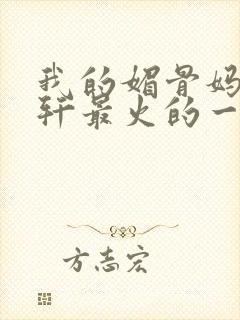 我的媚骨妈
轩最火的一
方志宏